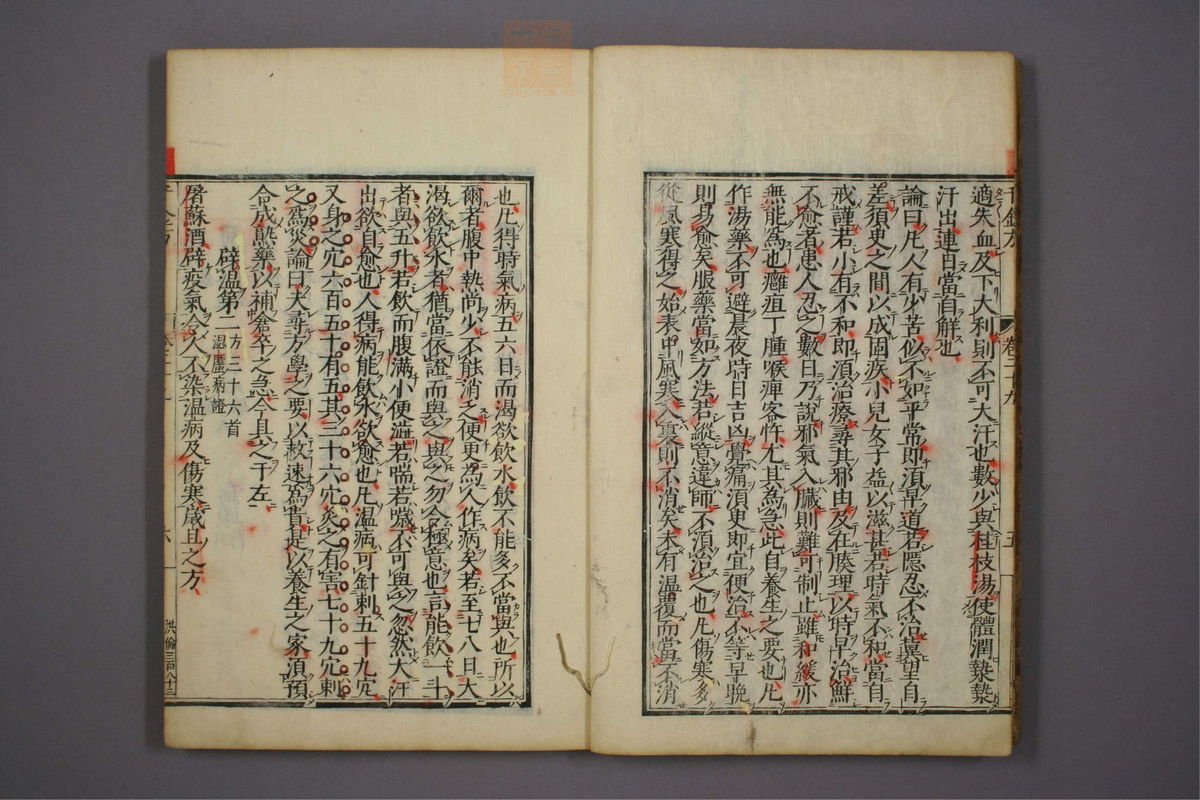 適失血及下大利則不可大汗也數少與桂枝湯使體潤漐漐
汗出連日當自解也
論曰凡人有少苦似不如平常即須早道若隱忍不治冀望自
差須臾之間以成固疾小兒女子益以滋甚若時氣不和當自
戒謹若小有不和即須治療尋其邪由及在腠理以時早治鮮
不愈者患人忍之數日乃說邪氣入臟則難可制止雖和緩亦
無能為也癰疽丁腫喉痺客忤尤其為急此自養生之要也凡
作湯藥不可避晨夜時日吉凶覺病須臾即宜便治不等早晚
則易愈矣服藥當如方法若縱意違師不須治之也凡傷寒多
從風寒得之始表中風寒入裏則不消矣未有溫覆而當不消
也凡得時氣病五六日而渴欲飲水飲不能多不當與也所以
爾者腹中熱尚少不能消之便更為人作病矣若至七八日大
渴欲飲水者猶當依證而與之與之勿令極意也言能飲一斗
者與五升若飲而腹滿小便澁若喘若噦不可與之忽然大汗
出欲自愈也人得病能飲水欲愈也凡溫病可針刺五十九穴
又身之穴六百五十有五其三十六穴灸之有害七十九穴刺
之為災論曰夫尋方學之要以救速為貴是以養生之家須預
合成熟藥以補倉卒之急今具之于左
辟溫第二方三十六首
溫䘌病證
屠蘇酒辟疫氣令人不染溫病及傷寒歲旦之方